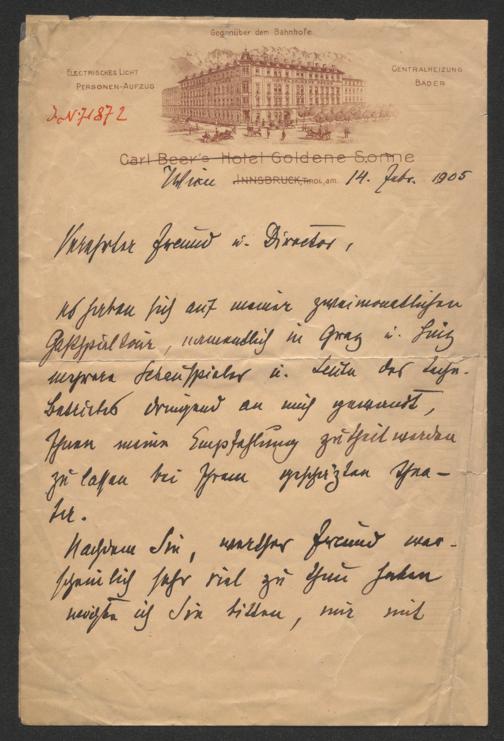 Gegenüber dem Bahnhofe.
ELECTRISCHES LICHT
PERSONEN-AUFZUG
CENTRALHEIZUNG
BÄDER
J.N. 71872
Carl Beer's Hotel Goldene Sonne
Wien INNSBRUCK, TIROL, am 14. Febr. 1905
Verehrter Freund u. Director,
es haben sich auf meiner zweimonatlichen
Gastspieltour, namendlich in Graz u. Linz
mehrere Schauspieler u. Leute des
Betriebes dringend an mich gewandt,
Ihnen meine Empfehlung zutheil werden
zu lassen bei Ihrem geschäzten Thea-
ter.
Nachdem Sie, werther Freund war-
scheinlich sehr viel zu thun haben
möchte ich Sie bitten, mir mit